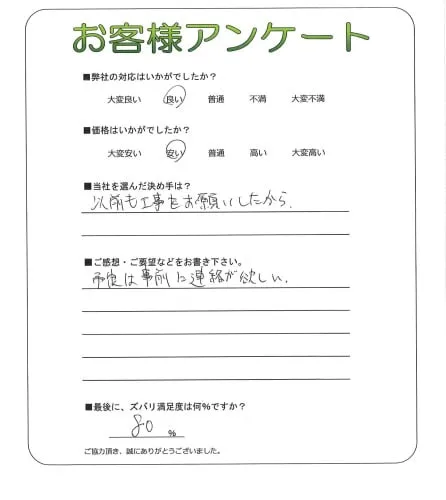 お客様アンケート
■弊社の対応はいかがでしたか？
大変良い 良い 普通 不満 大変不満
■価格はいかがでしたか？
大変安い 安い 普通 高い 大変高い
■当社を選んだ決め手は？
以前も工事をお願いしたから.
■ご感想・ご要望などをお書き下さい。
予定は事前に連絡が欲しい.
■最後に、ズバリ満足度は何%ですか？
80 %
ご協力頂き、誠にありがとうございました。